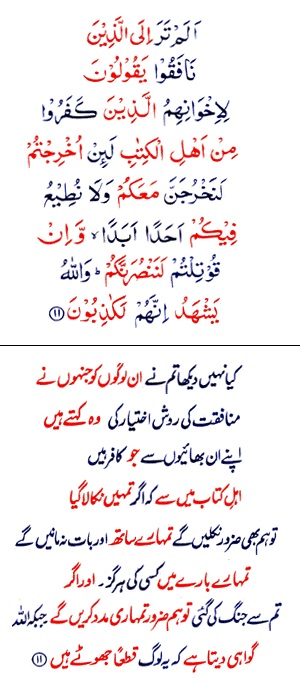 اَلَمْ تَرَ اِلَى الَّذِيْنَ
نَافَقُوْا يَقُوْلُوْنَ
لِاِخْوَانِهِمُ الَّذِيْنَ كَفَرُوْا
مِنْ اَهْلِ الْكِتٰبِ لَىِٕنْ اُخْرِجْتُمْ
لَنَخْرُجَنَّ مَعَكُمْ وَلَا نُطِيْعُ
فِيْكُمْ اَحَدًا اَبَدًاۙ وَّاِنْ
قُوْتِلْتُمْ لَنَنْصُرَنَّكُمْؕ وَاللّٰهُ
يَشْهَدُ اِنَّهُمْ لَكٰذِبُوْنَ ۝۱۱
کیا نہیں دیکھا تم نے ان لوگوں کو جنہوں نے
منافقت کی روش اختیار کی وہ کہتے ہیں
اپنے ان بھائیوں سے جو کافر ہیں
اہلِ کتاب میں سے کہ اگر تمہیں نکالا گیا
تو ہم بھی ضرور نکلیں گے تمہارے ساتھ اور بات نہ مانیں گے
تمہارے بارے میں کسی کی ہرگز۔ اور اگر
تم سے جنگ کی گئی تو ہم ضرور تمہاری مدد کریں گے جبکہ اللہ
گواہی دیتا ہے کہ یہ لوگ قطعاً جھوٹے ہیں ۝۱۱